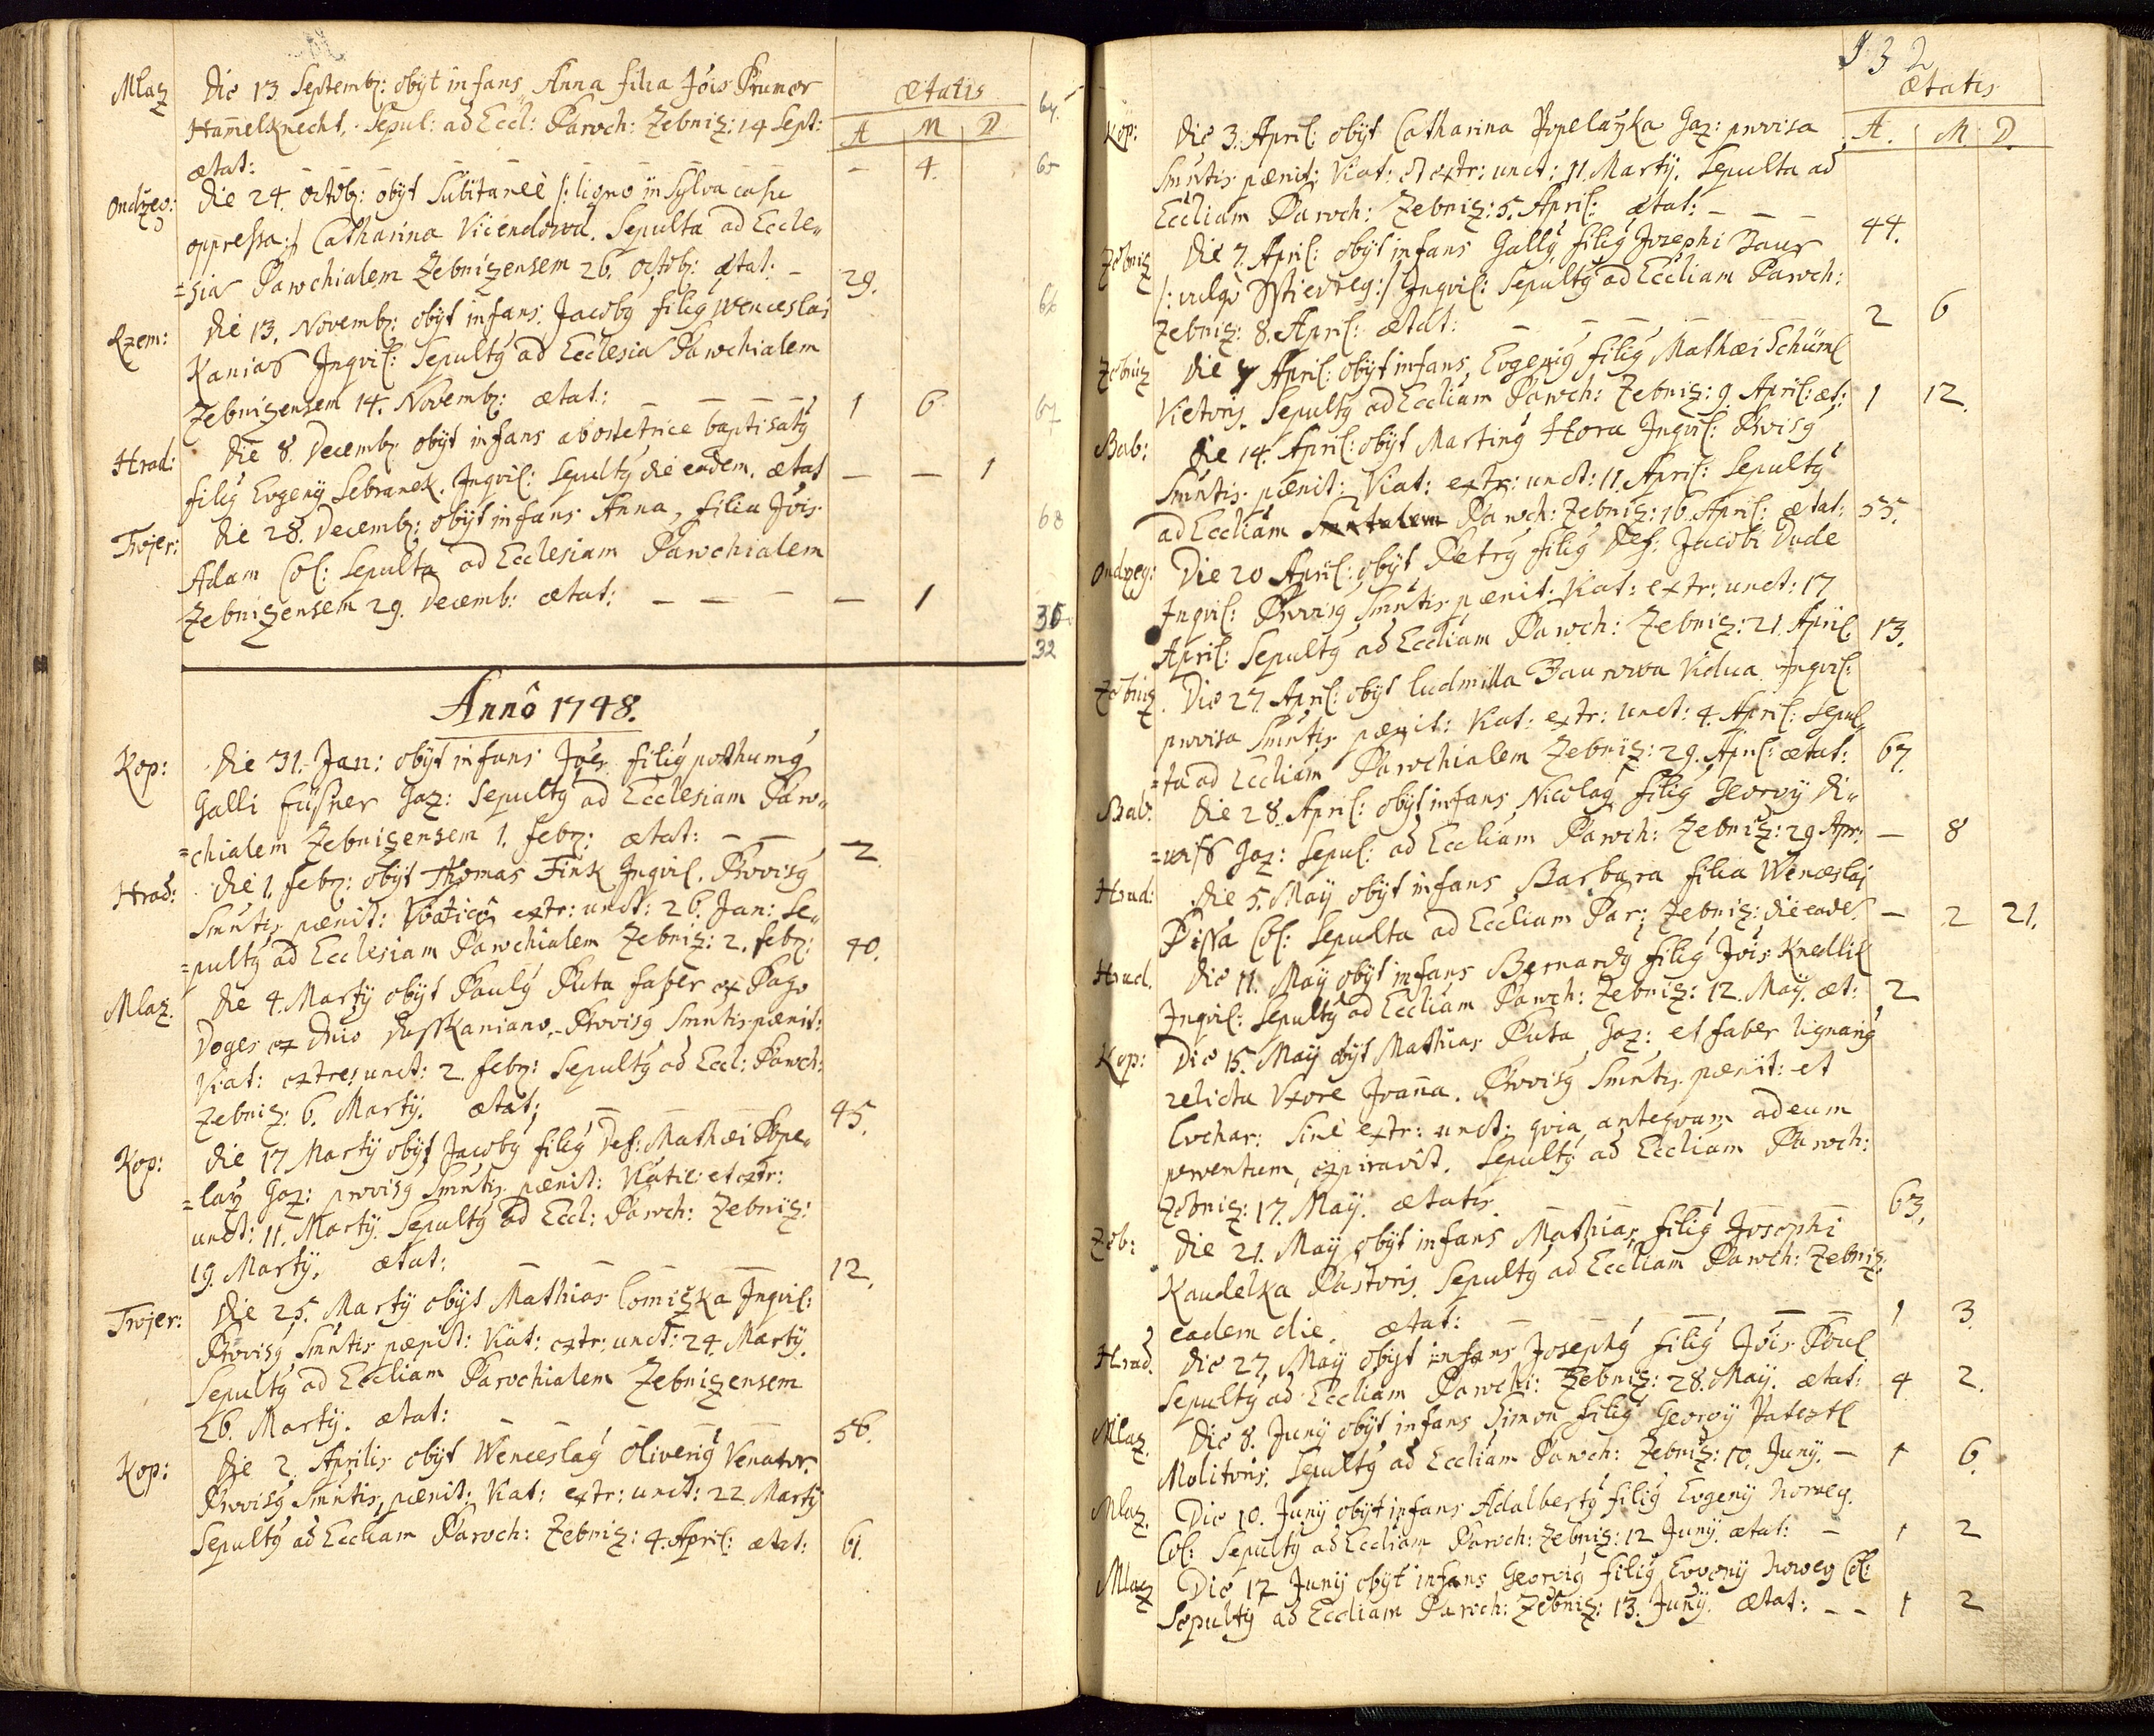 Mlaz Die 13 Septemb: obijt infans Anna filia Jois Prunor
ætatis
Hamelknecht. Sepul: ad Eccl: Paroch: Zebniz: 14 Sept:
A M D
64
ætat: — 4.
65
Ondrzeo: Die 24. octob: obijt Subitanee /: ligno in Sylva casu
oppressa :/ Catharina Vicendowa. Sepulta ad Eccle„
=sia Parochialem Zebnizensem 26. octob: ætat: — 29.
66
Rzem: Die 13. Novemb: obijt infans Jacobg filig Wenceslai
Kanias Jnqvil: Sepultg ad Ecclesia Parochialem
Zebnizensem 14. Novemb: ætat: — — — 1 6
67
Hrad: Die 8. Decemb: obijt infans ab ostetrice baptisatg
filig Evgenij Sebranek. Jnqvil: Sepultg die eadem. ætat — — 1
68
Trojer: Die 28. Decemb: obijt infans Anna, filia Jois
Adam Col: Sepulta ad Ecclesiam Parochialem
Zebnizensem 29. Decemb: ætat: — — — — 1
36.
32
Annô 1748.
Kop: Die 31. Jan: obijt infans Joes filig posthumg
Galli Fusner Gaz: Sepultg ad Ecclesiam Paro„
=chialem Zebnizensem 1. febr: ætat: — — 2.
Hrad: Die 1. febr: obijt Thomas Fink Jnqvil. Provisg
Smntis pænit: Viaticô extr: unct: 26. Jan: Se„
=pultg ad Ecclesiam Parochialem Zebniz: 2. febr: 40.
Mlaz. Die 4. Martij obijt Paulg Puta faber ex Pago
Doges ex Dnio Dasskaniano. Provisg Smntis pænit:
Viat: extre: unct: 2. febr: Sepultg ad Eccl: Paroch:
Zebniz: 6. Martij. ætat: — — — 45.
Kop: Die 17 Martij obijt Jacobg filig Def: Mathæi Pope„
=larz Gaz: provisg Smntis pænit: Viatic: et extr:
unct: 11. Martij. Sepultg ad Eccl: Paroch: Zebniz:
19. Martij. ætat: — — — 12.
Trojer: Die 25. Martij obijt Mathias Comizka Jnqvil:
Provisg Smntis pænit: Viat: extr: unct: 24. Martij.
Sepultg ad Eccliam Parochialem Zebnizensem
26. Martij. ætat: — — — 56.
Kop: Die 2. Aprilis obijt Wenceslag Oliverig Venator.
Provisg Smntis, pænit: Viat: extr: unct: 22 Martij
Sepultg ad Eccliam Paroch: Zebniz: 4. April: ætat: 61.
132
ætatis
Kop: Die 3. April: obijt Catharina Popelarzka Gaz: provisa
A. M D.
Smntis pænit: Viat: et extr: unct: 11. Martij. Sepulta ad
Eccliam Paroch: Zebniz: 5. April: ætat: — — — 44.
Zebniz Die 7. April: obijt infans Gallg filig Josephi Baur
/: vulgo :/ Jnqvil: Sepultg ad Eccliam Paroch:
Zebniz: 8. April: ætat: — — — 2 6
Zebniz Die 7 April: obijt infans, Evgenig filig Mathæi Schüml
Vietoris. Sepultg ad Eccliam Paroch: Zebniz: 9. April: æt: 1 12.
Bab: Die 14. April: obijt Marting Hora Jnqvil: Provisg
Smntis pænit: Viat: extr: unct: 11. April: Sepultg
ad Eccliam Paroch: Zebniz: 16. April: ætat: 55.
Ondrzeg: Die 20 April: obijt Petrg filig Def: Jacobi Dude
Jnqvil: Provisg Smntis pænit: Viat: extr: unct: 17
April: Sepultg ad Eccliam Paroch: Zebniz: 21. April 13.
Zebniz. Die 27. April: obijt Ludmilla Baurowa Vidua Jnqvil:
provisa Smntis pænit: Viat: extr: unct: 4. April: Sepul„
=ta ad Eccliam Parochialem Zebniz: 29. April: ætat: 67.
Bab: Die 28. April: obijt infans Nicolag filig Georgij Di„
=wiss Gaz: Sepul: ad Eccliam Paroch: Zebniz: 29 Apr: — 8
Hrad: Die 5. Maij obijt infans Barbara filia Wenceslai
Pissa Col: Sepulta ad Eccliam Par: Zebniz: die eade. — 2 21.
Hrad. Die 11. Maij obijt infans Bernardg filig Jois Knedlik
Jnqvil: Sepultg ad Eccliam Paroch: Zebniz: 12. Maij. æt: 2
Kop: Die 15. Maij obijt Mathias Puta Gaz: et faber lignarig
relicta Vxore Joanna. Provisg Smntis pænit: et
Evchar: Sine extr: unct: qvia anteqvam ad eum
perventum, expiravit. Sepultg ad Eccliam Paroch:
Zebniz: 17. Maij. ætatis. — — — 63.
Zeb: Die 21. Maij obijt infans Mathias filig Josephi
Kaudelka Pastoris. Sepultg ad Eccliam Paroch: Zebniz:
eadem die. ætat: — — — — 1 3.
Hrad. Die 27. Maij obijt infans Josephg filig Jois Poul
Sepultg ad Eccliam Paroch: Zebniz: 28. Maij. ætat: 4 2.
Mlaz. Die 8. Junij obijt infans Simon filig Georgij Patertl
Molitoris. Sepultg ad Eccliam Paroch: Zebniz: 10. Junij. — 1 6.
Mlaz. Die 10. Junij obijt infans Adalbertg filig Evgenij Norweg.
Col: Sepultg ad Eccliam Paroch: Zebniz: 12 Junij. ætat: — 1 2
Mlaz Die 12 Junij obijt infans Georgig filig Evgenij Norweg Col:
Sepultg ad Eccliam Paroch: Zebniz: 13. Junij. ætat: — — 1 2